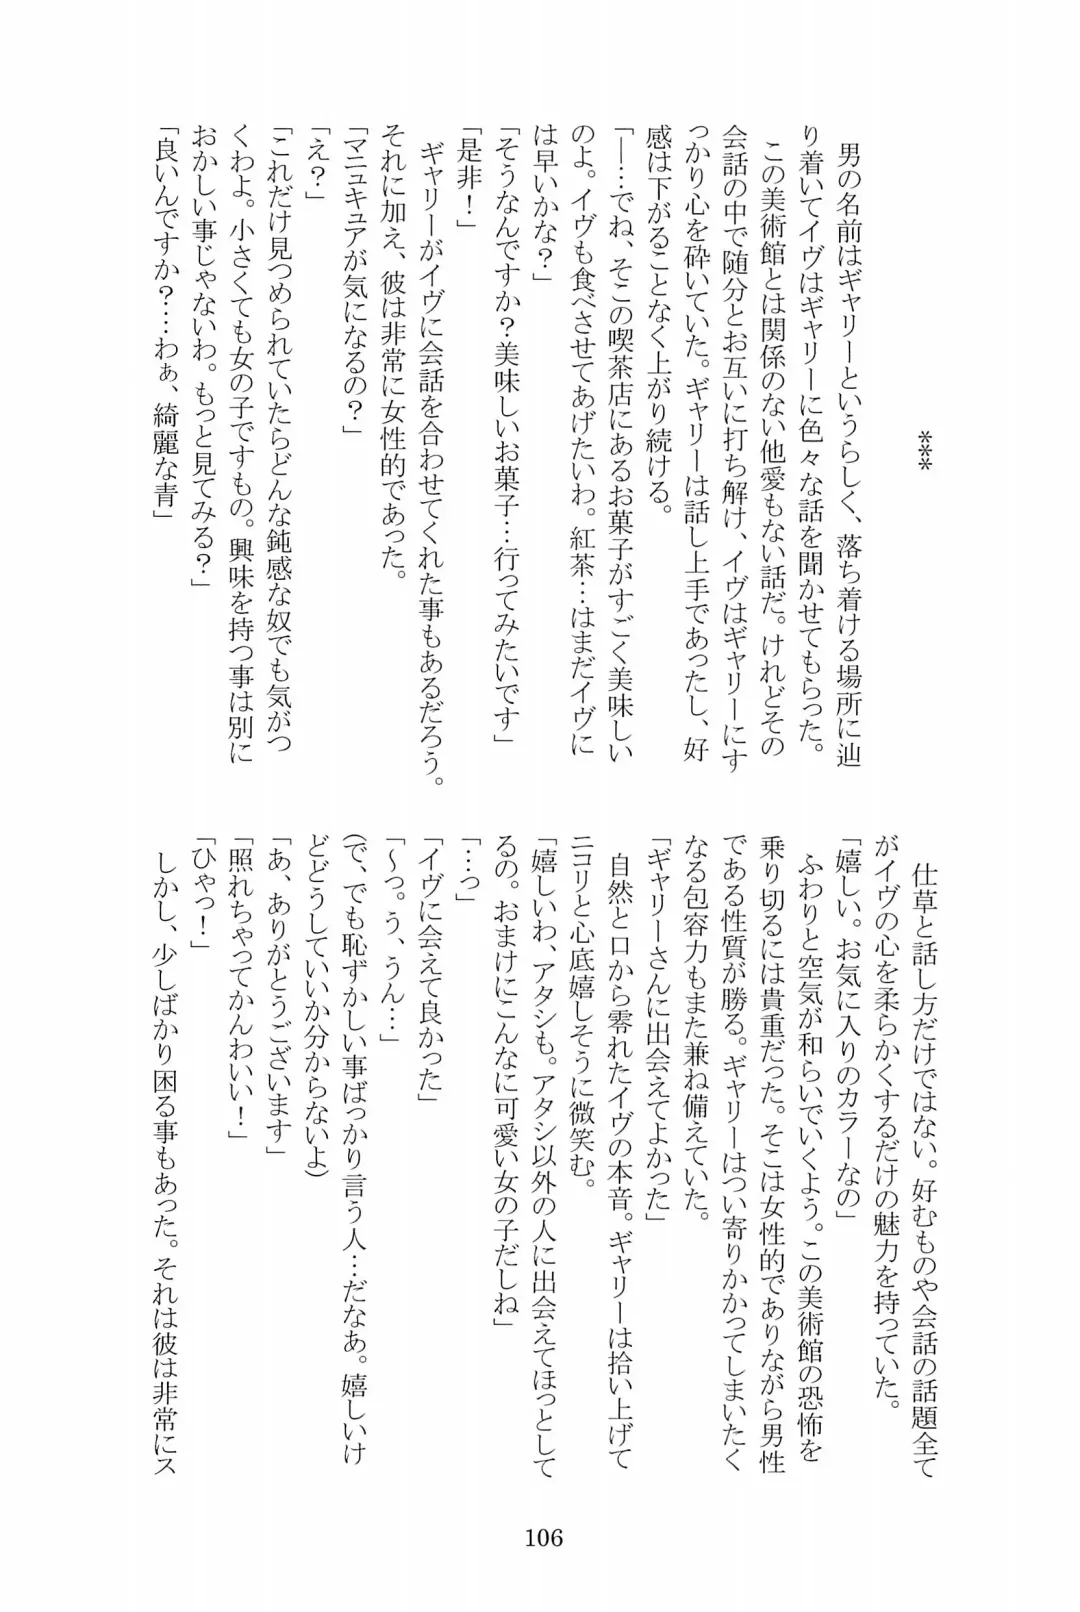 ***
男の名前はギャリーというらしく、落ち着ける場所に辿
り着いてイヴはギャリーに色々な話を聞かせてもらった。
この美術館とは関係のない他愛もない話だ。けれどその
会話の中で随分とお互いに打ち解け、イヴはギャリーにす
っかり心を砕いていた。ギャリーは話し上手であったし、好
感は下がることなく上がり続ける。
「―…でね、そこの喫茶店にあるお菓子がすごく美味しい
のよ。イヴも食べさせてあげたいわ。紅茶…はまだイヴに
は早いかな？」
「そうなんですか？美味しいお菓子…行ってみたいです」
「是非！」
ギャリーがイヴに会話を合わせてくれた事もあるだろう。
それに加え、彼は非常に女性的であった。
「マニュキュアが気になるの？」
「え？」
「これだけ見つめられていたらどんな鈍感な奴でも気がつ
くわよ。小さくても女の子ですもの。興味を持つ事は別に
おかしい事じゃないわ。もっと見てみる？」
「良いんですか？…わぁ、綺麗な青」
仕草と話し方だけではない。好むものや会話の話題全て
がイヴの心を柔らかくするだけの魅力を持っていた。
「嬉しい。お気に入りのカラーなの」
ふわりと空気が和らいでいくよう。この美術館の恐怖を
乗り切るには貴重だった。そこは女性的でありながら男性
である性質が勝る。ギャリーはつい寄りかかってしまいたく
なる包容力もまた兼ね備えていた。
「ギャリーさんに出会えてよかった」
自然と口から零れたイヴの本音。ギャリーは拾い上げて
ニコリと心底嬉しそうに微笑む。
「嬉しいわ、アタシも。アタシ以外の人に出会えてほっとして
るの。おまけにこんなに可愛い女の子だしね」
「…っ」
「イヴに会えて良かった」
「～っ。う、うん…」
(で、でも恥ずかしい事ばっかり言う人…だなあ。嬉しいけ
どどうしていいか分からないよ)
「あ、ありがとうございます」
「照れちゃってかんわいい！」
「ひゃっ！」
しかし、少しばかり困る事もあった。それは彼は非常にス
106